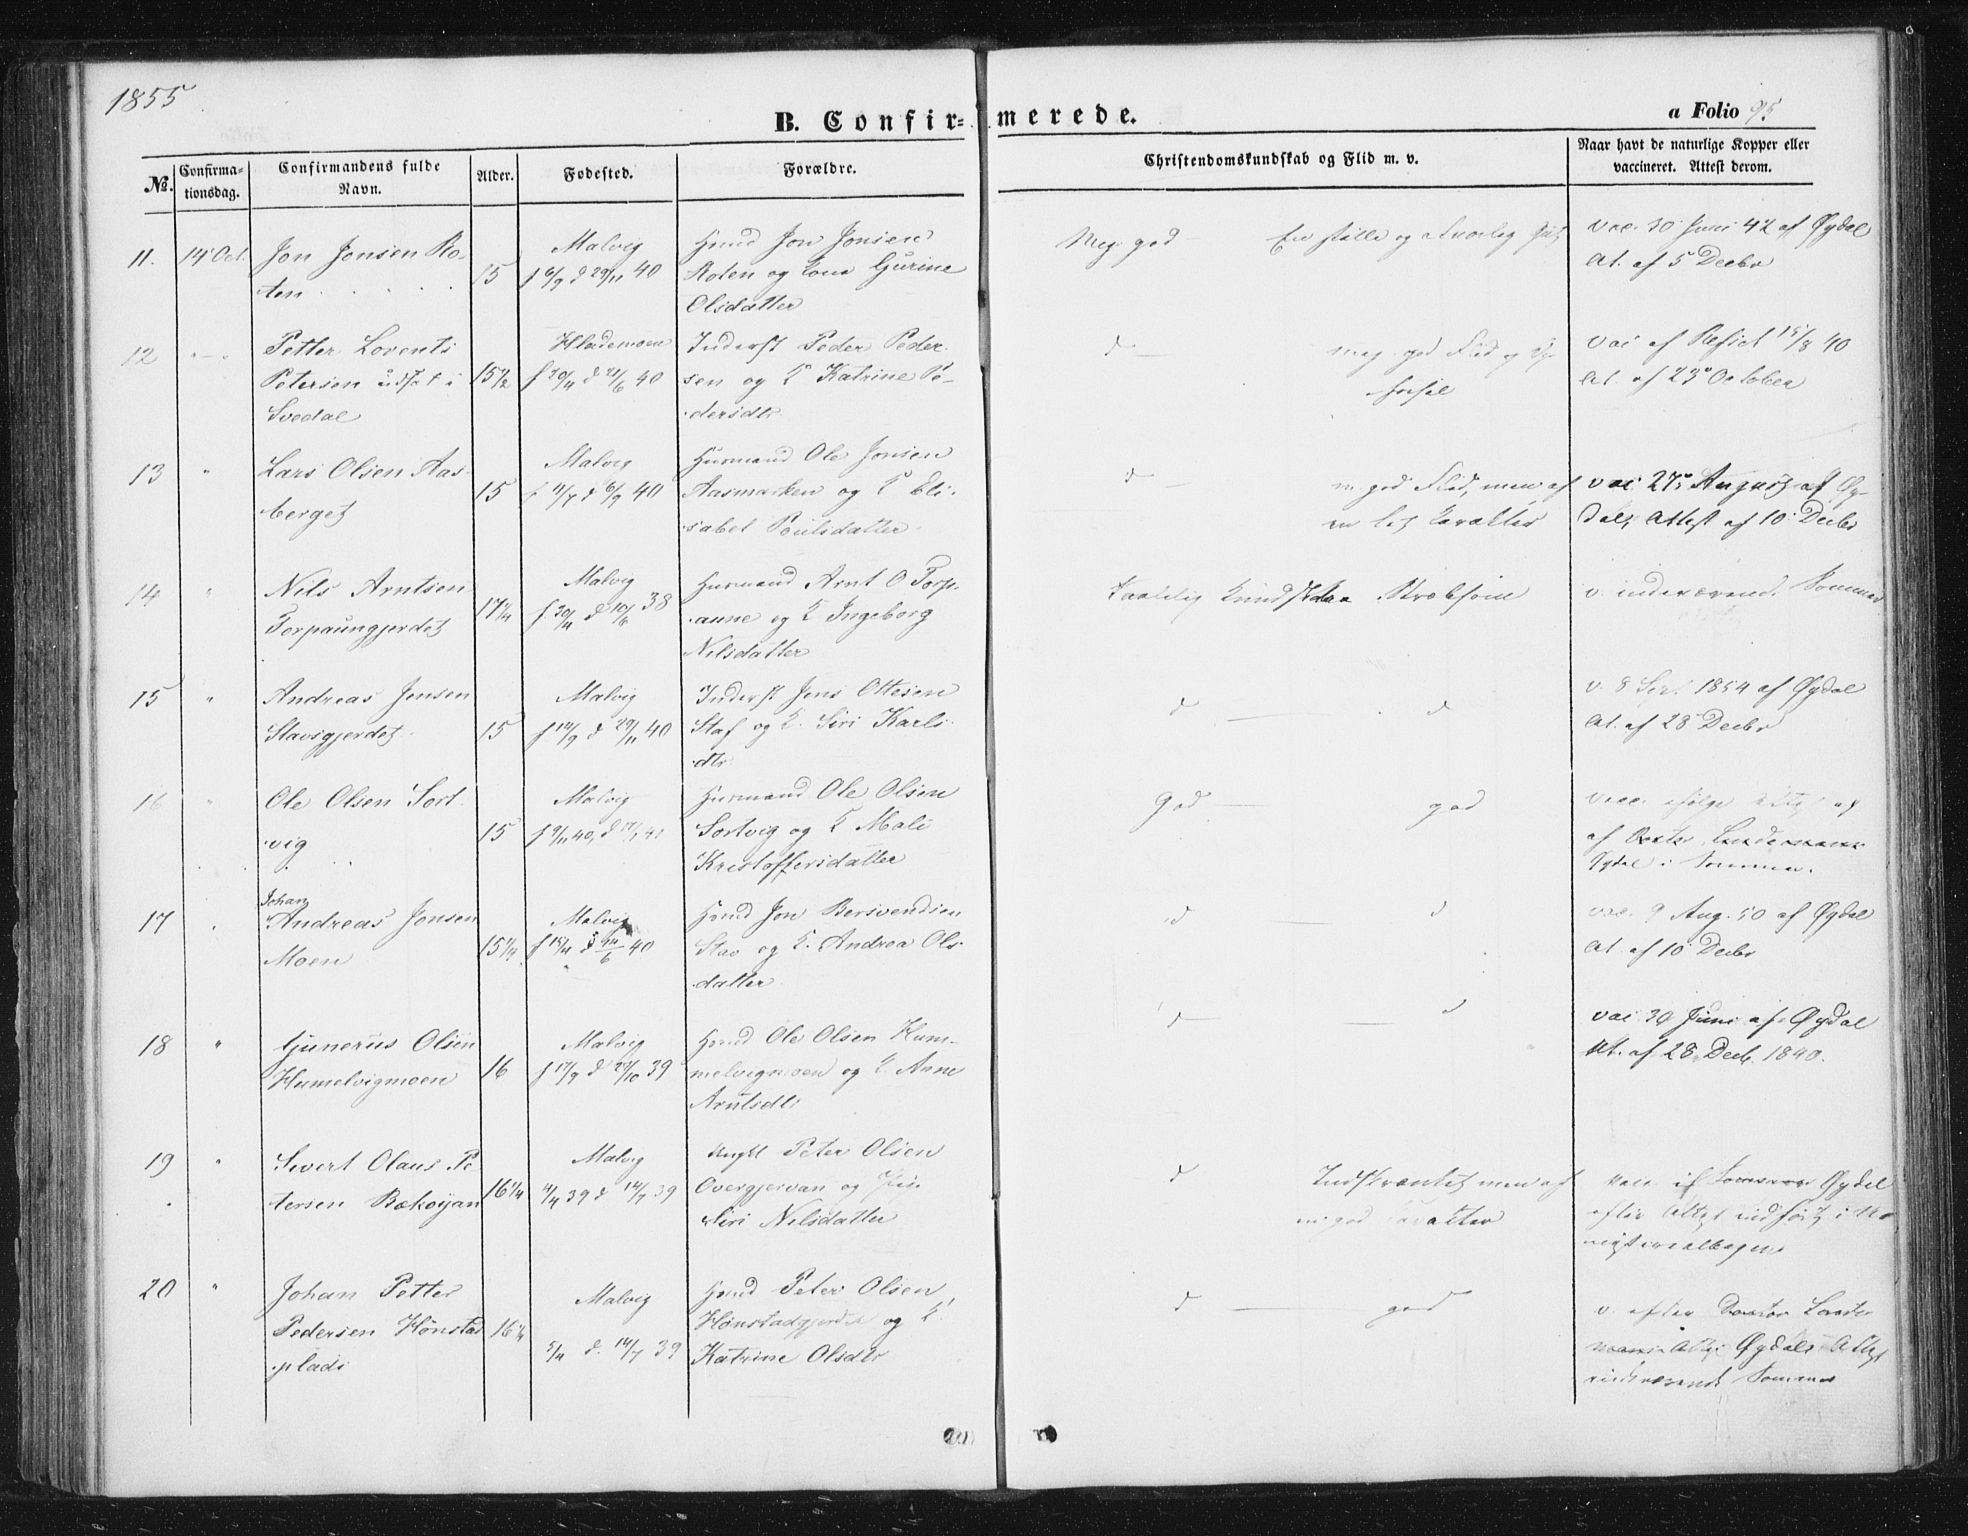 1855
B. Confir= merede.
a Folio 95
№.
Confirma-
tionsdag.
Confirmandens fulde
Navn.
Alder.
Fødested.
Forældre.
Christendomskundskab og Flid m. v.
Naar havt de naturlige Kopper eller
vaccineret. Attest derom.
11. 14 Oct. Jon Jonsen Ro-
ten
15
Malvig
f 6/9 d 29/11 40
Hmd Jon Jonsen
Roten og Kona Gurine
Olsdatter
Meg. god
En stille og
vac. 30 Juni 42 af Øydal
At. af 5 Decbr
12 Petter Lorents
Petersen udsat i
Svedal
15 1/2
Hlademoen
f 20/4 d 21/6 40
Inderst Peder Peder-
sen og K Katrine Pe-
dersdtr
d
meg. god Flid og
vac af Resict 15/8 40
At. af 23 October
13 " Lars Olsen Aas-
berget
15
Malvig
f 11/7 d 6/9 40
Husmand Ole Jonsen
Aasmarken og K Eli-
sabet Poulsdatter
d
m. god Flid, men af
en let Karakter
vac 27 August af Øy-
dal, Attest af 10 Decbr
14 " Nils Arntsen
Torpaungjerdet
17 1/4
Malvig
f. 20/4 d 10/6 38
Husmand Arnt O Torp-
anne og K Ingeborg
Nilsdatter
taalelig Kundskab
v. indeværende Sommer
15 " Andreas Jensen
Stavsgjerdet
15
Malvig
f 14/9 d 29/11 40
Inderst Jens Ottesen
Staf og K. Siri Karls-
dtr
d d
v. 8 Sept 1854 af Øydal
At. af 28 Decbr
16 " Ole Olsen Sort-
vig
15
Malvig
f 9/11 40, d 17/1 41
Husmand Ole Olsen
Sortvig og K Mali
Kristoffersdatter
God god
vacc. ifølge Attest af
af Doctor Lindemann
Øydal i Sommer.
17 Johan
Andreas Jonsen
Moen
15 1/4
Malvig
f 15/4 d 40
Hmd Jon Bersvendsen
Stav og K. Andrea Ols-
datter
d d
vac. 9 Aug. 50 af Øydal
At. af 10 Decbr
18 " Gunerus Olsen
Humelvigmoen
16
Malvig
f 17/9 d 27/10 39
Hmd Ole Olsen Hum-
melvigmoen og K. Anne
Arntsdtr
d d
vac 30 Juni af Øydal
At. af 28. Decb. 1840.
19 " Sivert Olaus Pe-
tersen Bækøyan
16 1/4
Malvig
4/4 39 d 14/7 39
Ungkl Peter Olsen
Overgjervan og Pig.
Siri Nilsdatter
d
Indskrænket men af
m. god Karakter
vacc af Sommer Øydal
efter Attest indført i Mi-
nisterialbogen
20 " Johan Petter
Pedersen Hønstad-
plads
16 1/4
Malvig
5/4 d. 14/7 39
Hmd Peter Olsen
Hønstadgjerdet og K.
Katrine Olsdtr
d god
v. efter Doctor
Øydals Attest
indeværende Sommer